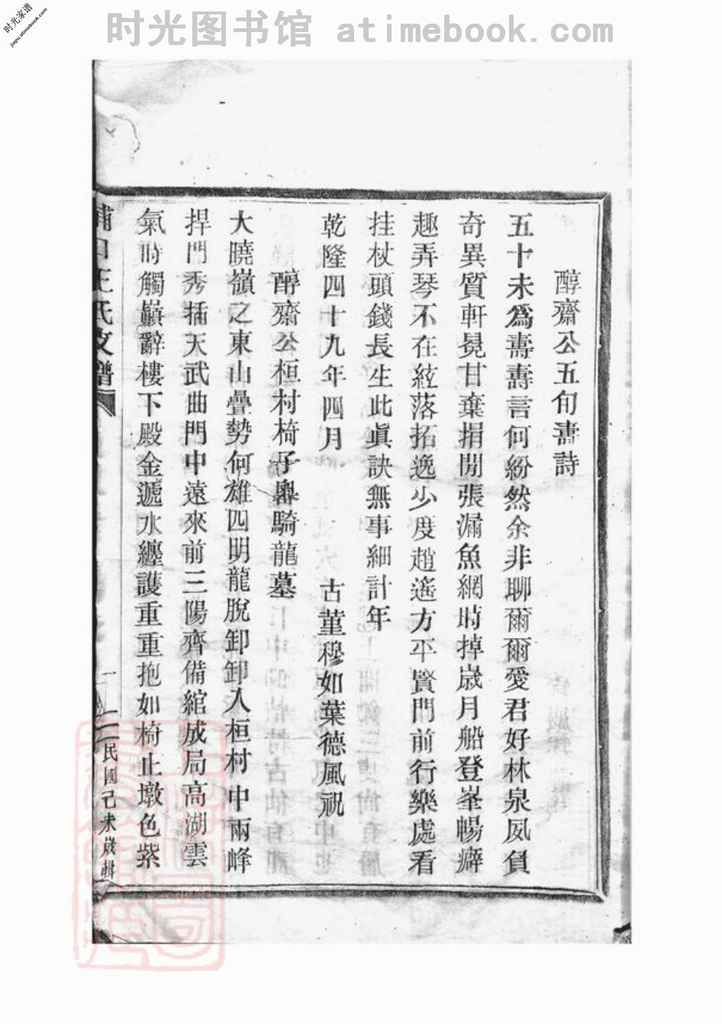 时光家谱
jiapu.atimebook.com
时光图书馆 atimebook.com
醇齋公五旬壽詩
五十未爲壽壽言何紛然余非聊爾爾愛君好林泉夙負
奇異質軒冕甘棄捐閒張漏魚網時掉歲月船登峯暢癖
趣弄琴不在絃落拓逸少度趙遙方平賢門前行樂處看
挂杖頭錢長生此眞訣無事細計年
乾隆四十九年四月 古堇穆如葉德風祝
醇齋公桓村椅子嶴騎龍墓
大曉嶺之東山疊勢何雄四明龍脫卸卸入桓村中兩峰
捍門秀插天武曲門中遠來前三陽齊備綰成局高湖雲
氣時觸巔辭樓下殿金遞水纏護重重抱如椅止墩色紫
浦口王氏支譜
一
民國己未歲輯